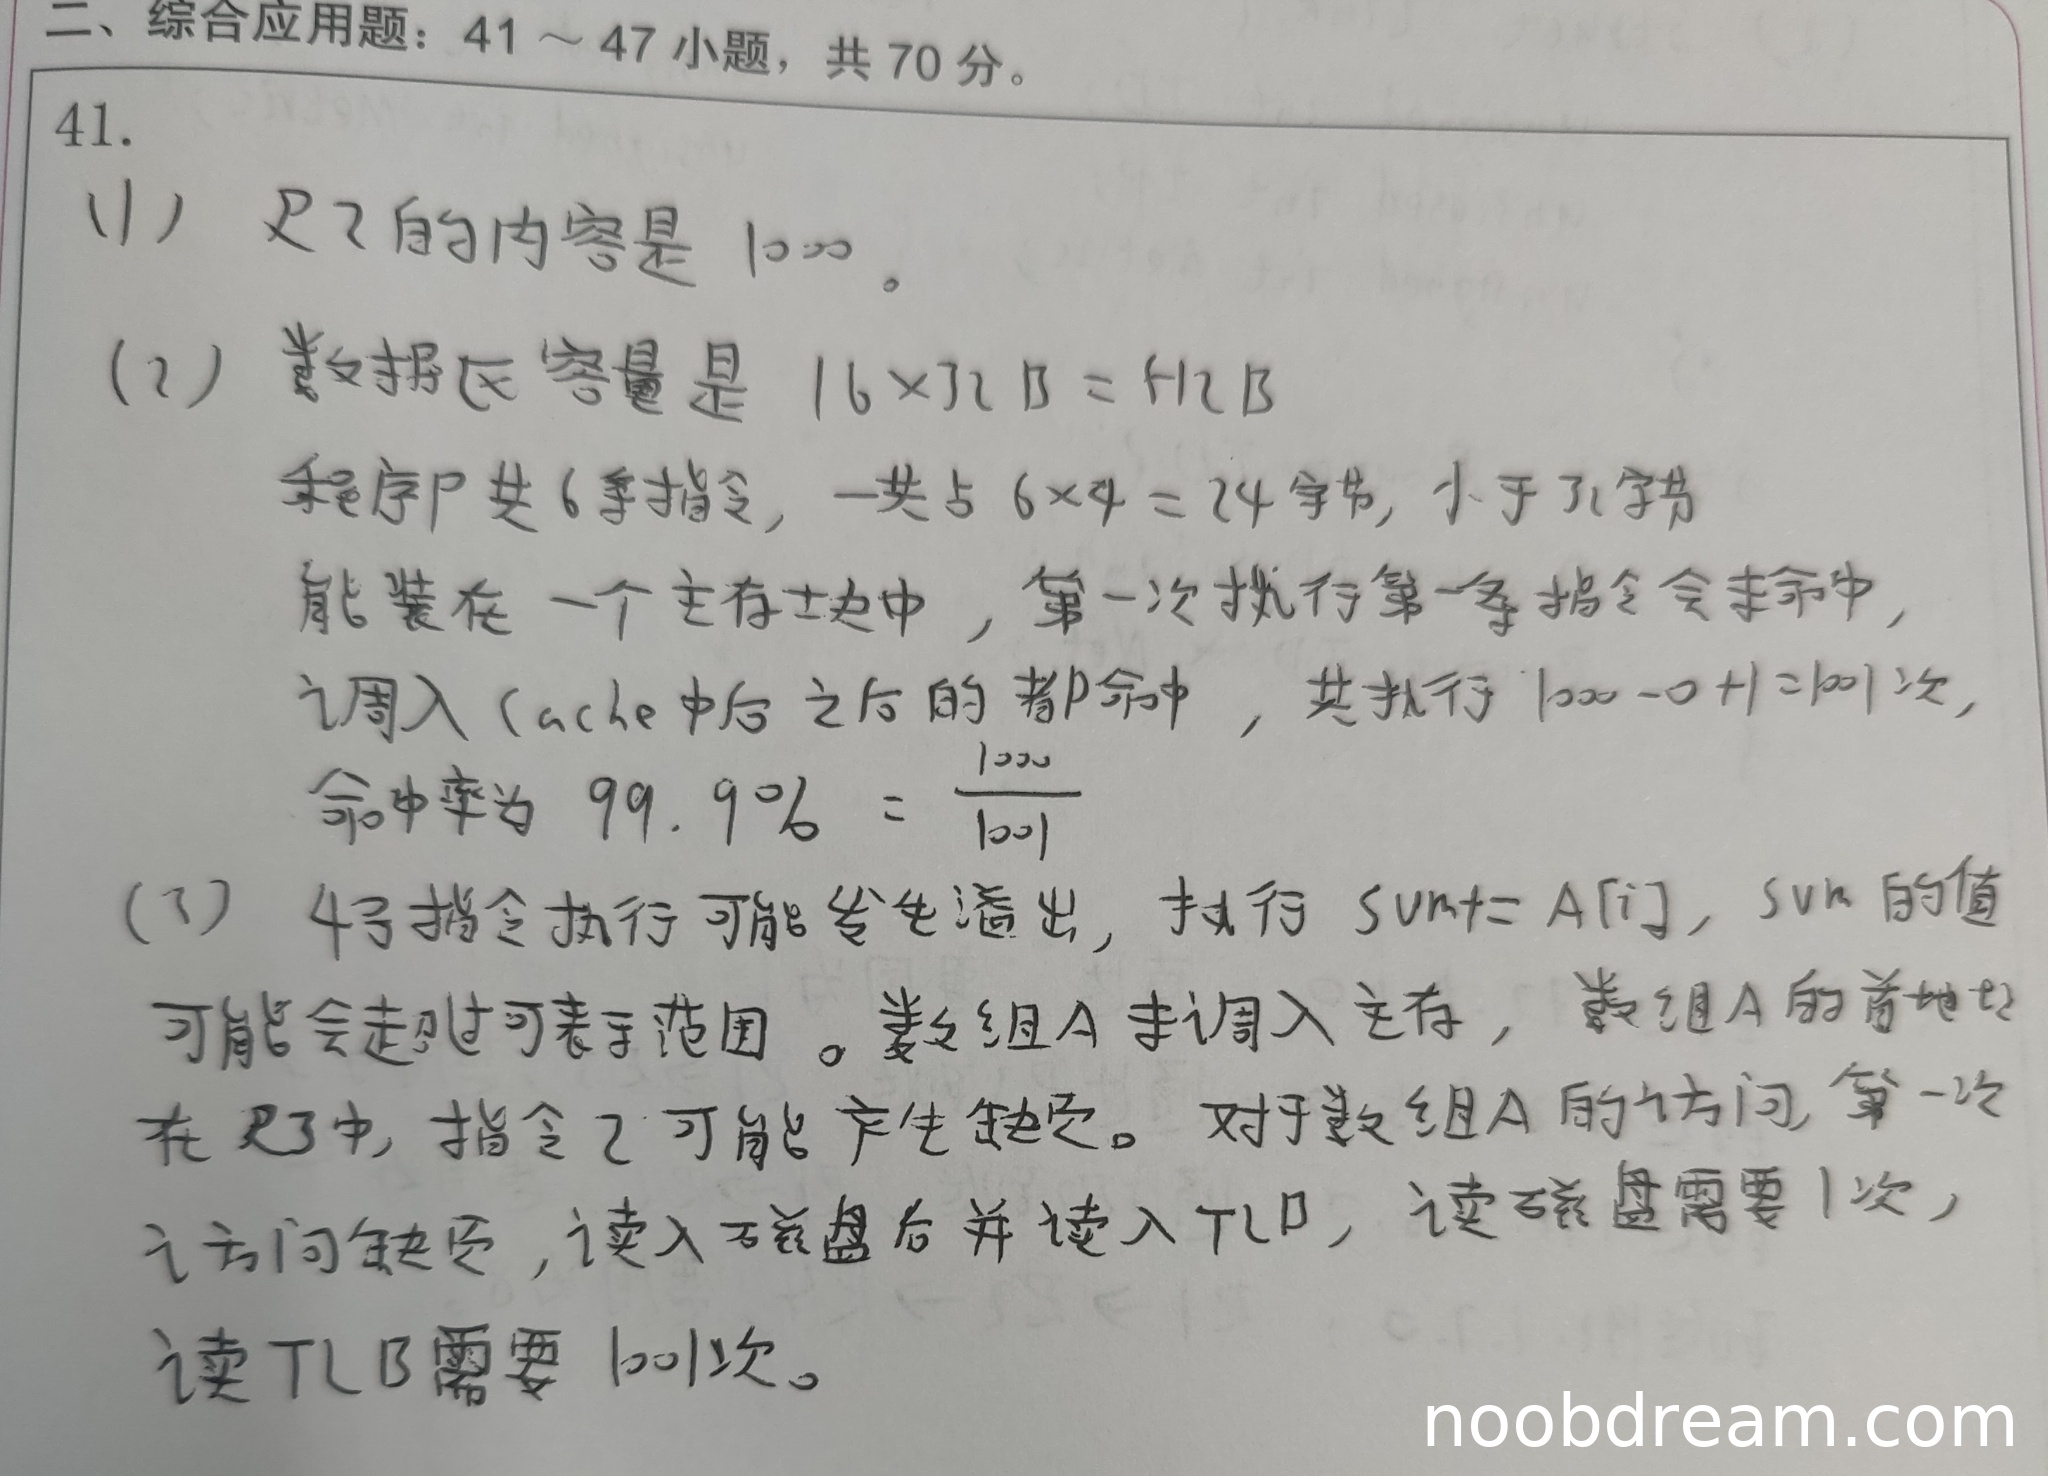 二、综合应用题：41～47小题，共70分。
41.
(1) R2的内容是 1000。
(2) 数据区容量是 16×32B = 512B
程序P共6条指令，一共占 6×4 = 24字节，小于32字节
能装在一个主存块中，第一次执行第一条指令会未命中，
调入Cache中后之后的都命中，共执行 1000-0+1=1001次，
命中率为 99.9% = 1000/1001
(3) 4号指令执行可能发生溢出，执行 sum+= A[i]，sum的值
可能会超过可表示范围。数组A未调入主存，数组A的首地址
在R3中，指令2可能产生缺页。对于数组A的访问，第一次
访问缺页，读入磁盘后并读入TLB，读磁盘需要1次，
读TLB需要1001次。
noobdream.com